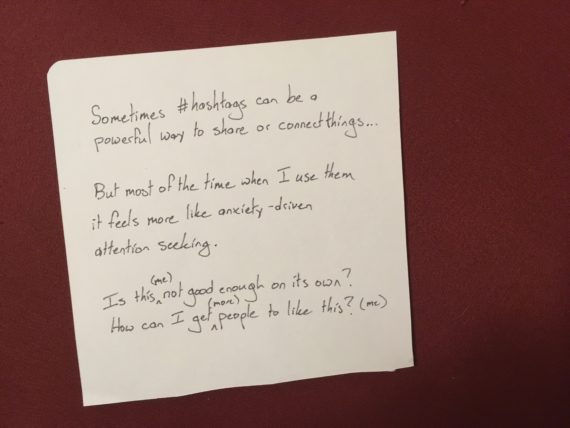 Sometimes #hashtags can be a
powerful way to share or connect things...
But most of the time when I use them
it feels more like anxiety-driven
attention seeking.
Is this ^(me) not good enough on its own?
How can I get ^(more) people to like this? (me)